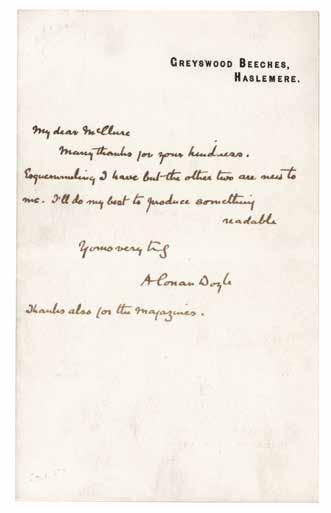 GREYSWOOD BEECHES,
HASLEMERE.
My dear McClure
Many thanks for your kindness.
Esquemeling I have but the other two are new to
me. I'll do my best to produce something
readable
Yours very try
A Conan Doyle
Thanks also for the Magazines.